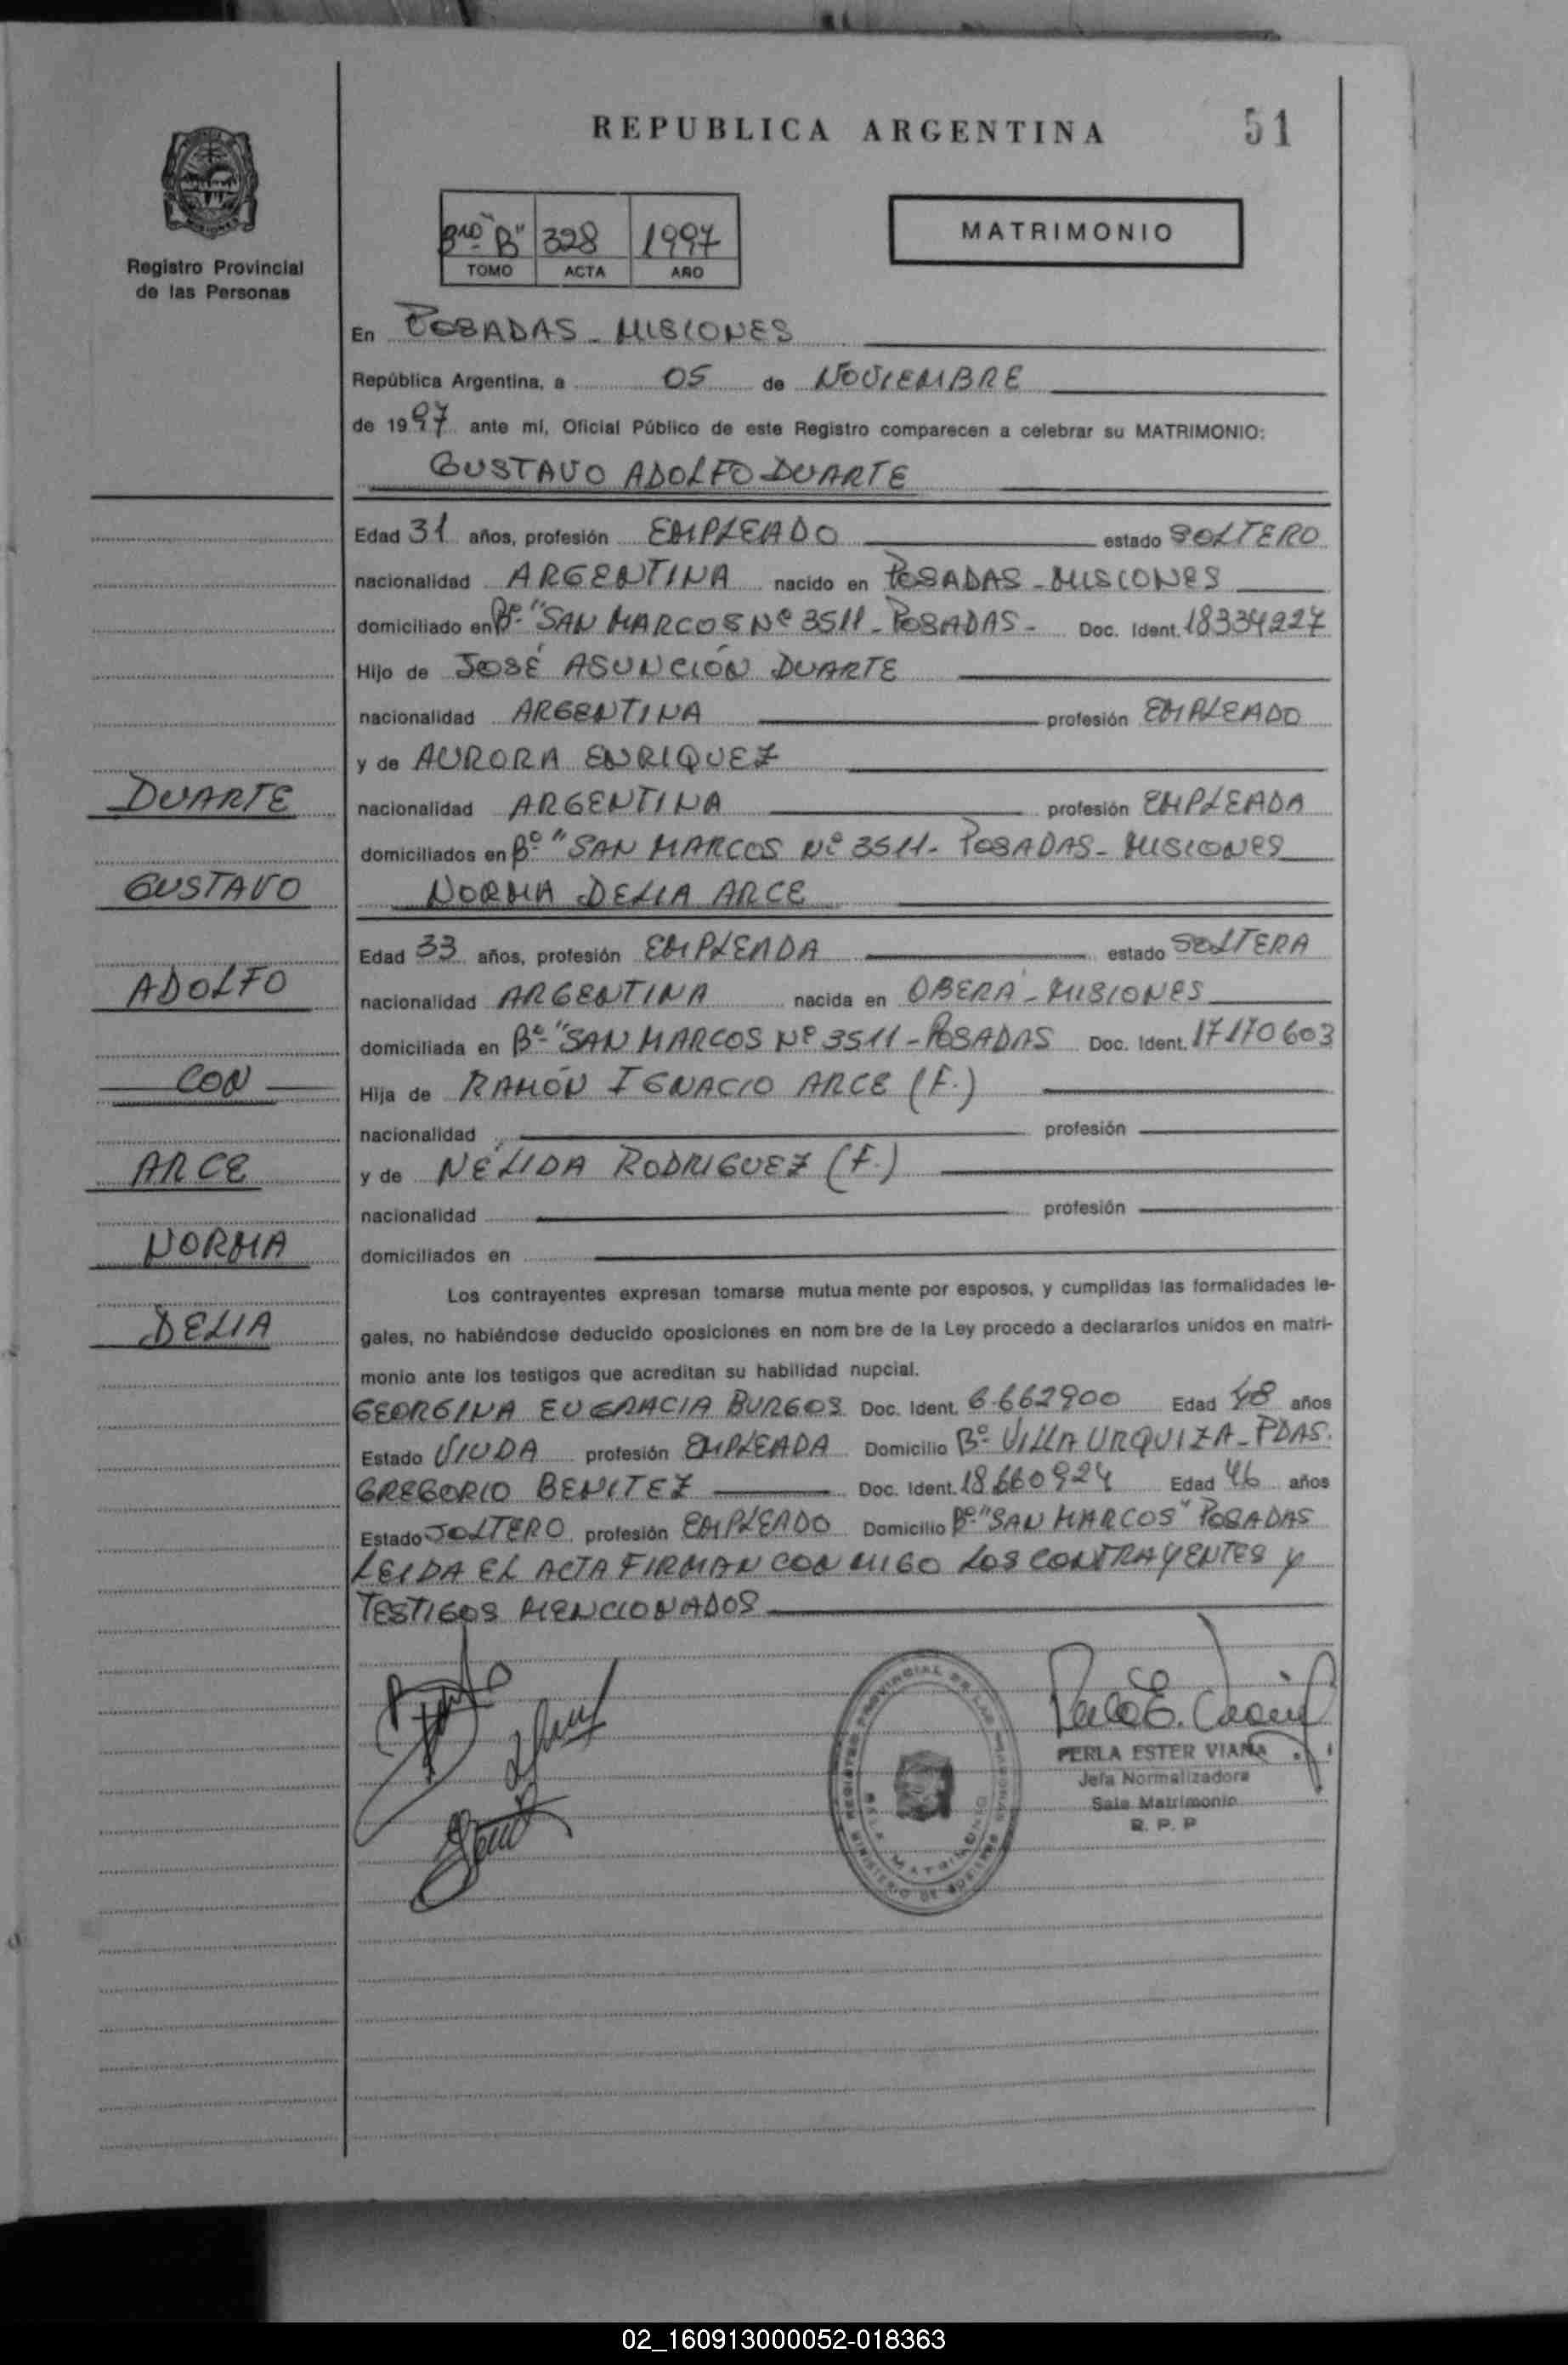 REPUBLICA ARGENTINA
51
Registro Provincial
de las Personas
3ro "B" 328 1997
TOMO ACTA AÑO
MATRIMONIO
En POSADAS - MISIONES
República Argentina, a 05 de NOVIEMBRE
de 1997 ante mí, Oficial Público de este Registro comparecen a celebrar su MATRIMONIO:
GUSTAVO ADOLFO DUARTE
Edad 31 años, profesión EMPLEADO estado SOLTERO
nacionalidad ARGENTINA nacido en POSADAS - MISIONES
domiciliado en Bº "SAN MARCOS Nº 3511 - POSADAS - Doc. Ident. 18334227
Hijo de JOSÉ ASUNCIÓN DUARTE
nacionalidad ARGENTINA profesión EMPLEADO
y de AURORA ENRIQUEZ
nacionalidad ARGENTINA profesión EMPLEADA
domiciliados en Bº "SAN MARCOS Nº 3511 - POSADAS - MISIONES
NORMA DELIA ARCE
Edad 33 años, profesión EMPLEADA estado SOLTERA
nacionalidad ARGENTINA nacida en OBERÁ - MISIONES
domiciliada en Bº "SAN MARCOS Nº 3511 - POSADAS Doc. Ident. 17170603
Hija de RAMÓN IGNACIO ARCE (F.)
nacionalidad profesión
y de NÉLIDA RODRIGUEZ (F.)
nacionalidad profesión
domiciliados en
Los contrayentes expresan tomarse mutua mente por esposos, y cumplidas las formalidades le-
gales, no habiéndose deducido oposiciones en nom bre de la Ley procedo a declararlos unidos en matri-
monio ante los testigos que acreditan su habilidad nupcial.
GEORGINA BURGOS Doc. Ident. 6.662900 Edad 48 años
Estado VIUDA profesión EMPLEADA Domicilio Bº VILLA URQUIZA - PDAS.
GREGORIO BENITEZ Doc. Ident. 18.660924 Edad 46 años
Estado SOLTERO profesión EMPLEADO Domicilio Bº "SAN MARCOS" POSADAS
LEIDA EL ACTA FIRMAN CON MIGO LOS CONTRAYENTES Y
TESTIGOS MENCIONADOS
DUARTE
GUSTAVO
ADOLFO
CON
ARCE
NORMA
DELIA
REGISTRO PROVINCIAL DE LAS PERSONAS
MINISTERIO DE GOBIERNO
SALA MATRIMONIO
PERLA ESTER VIANA
Jefa Normalizadora
Sala Matrimonio
R. P. P
02_160913000052-018363